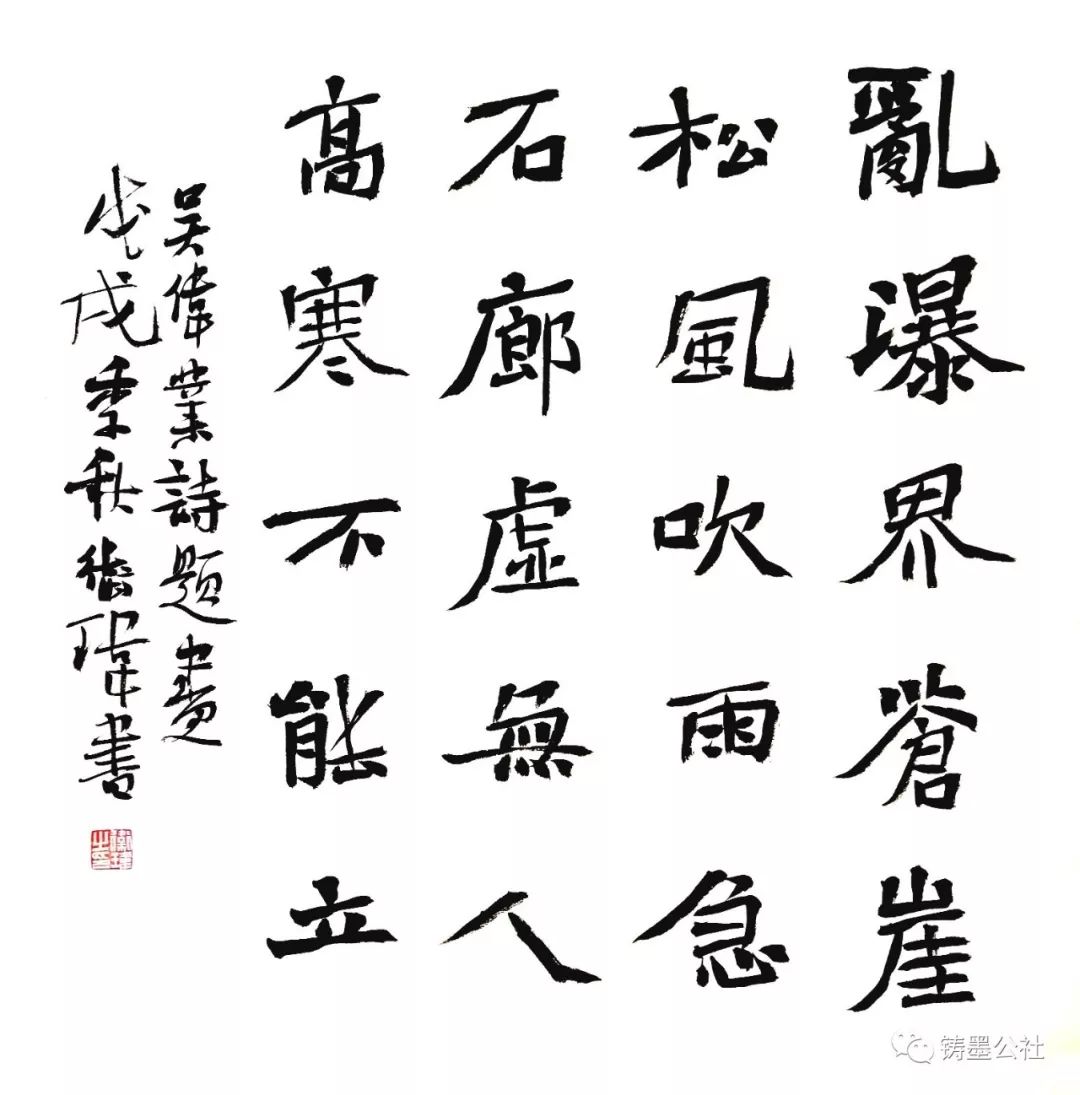 亂瀑界蒼崖
松風吹雨急
石廊虛無人
高寒不能立
吳偉業詩題畫
戊戌季秋衛瑋書
铸墨公社